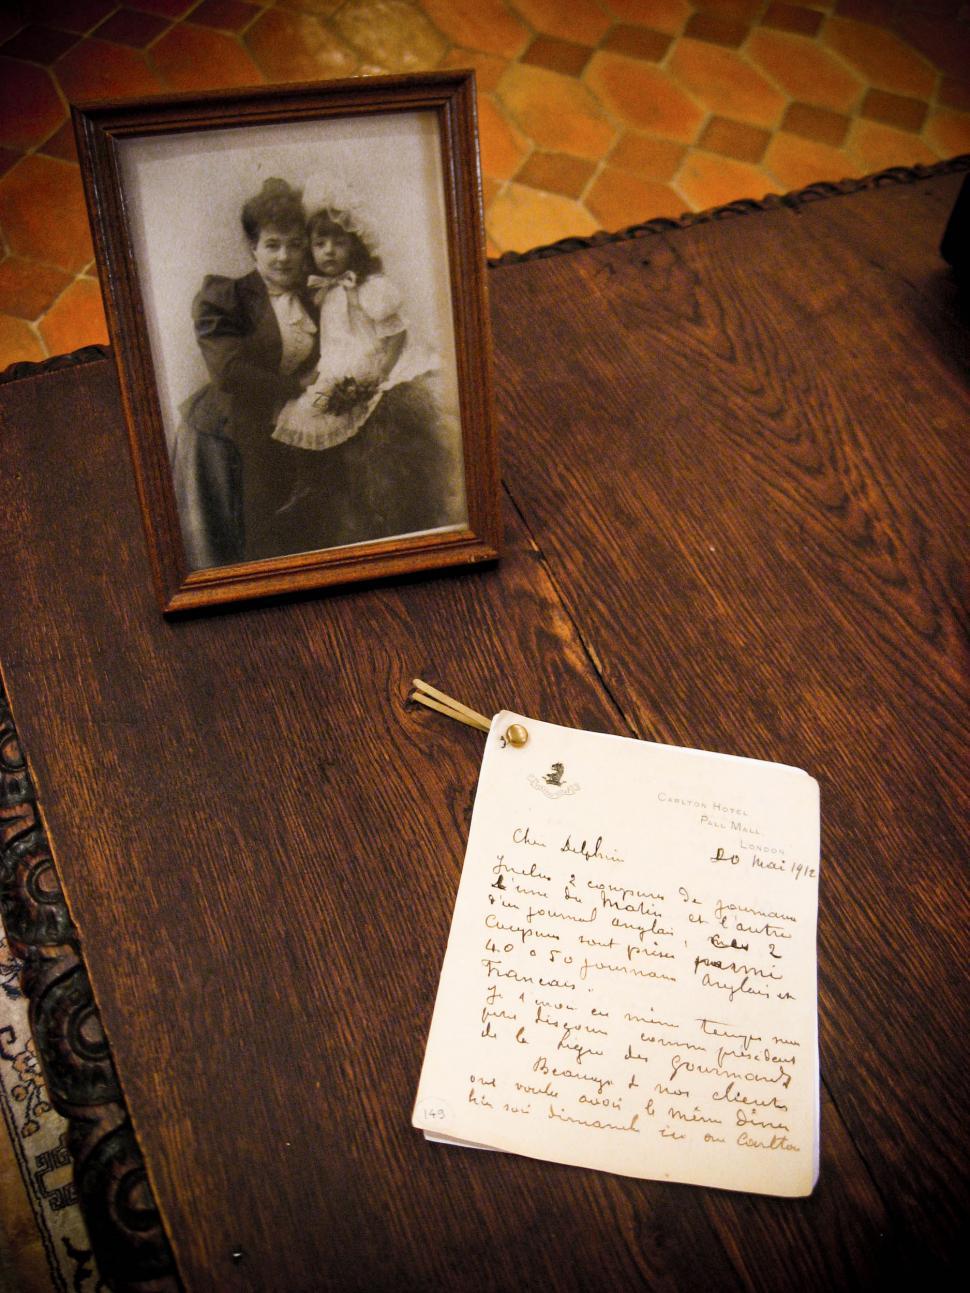 CARLTON HOTEL
PALL MALL.
LONDON
20 Mai 1912
Cher Delphin
2 coupures de journaux
L'une du Matin et l'autre
d'un journal anglais, 2
Coupures sont prises parmi
40 à 50 journaux Anglais et
Francais.
en même temps mon
discours comme président
de la Ligue des gourmands
Beaucoup de nos clients
ont voulu avoir le même Diner
hier soir dimanche ici au Carlton
149